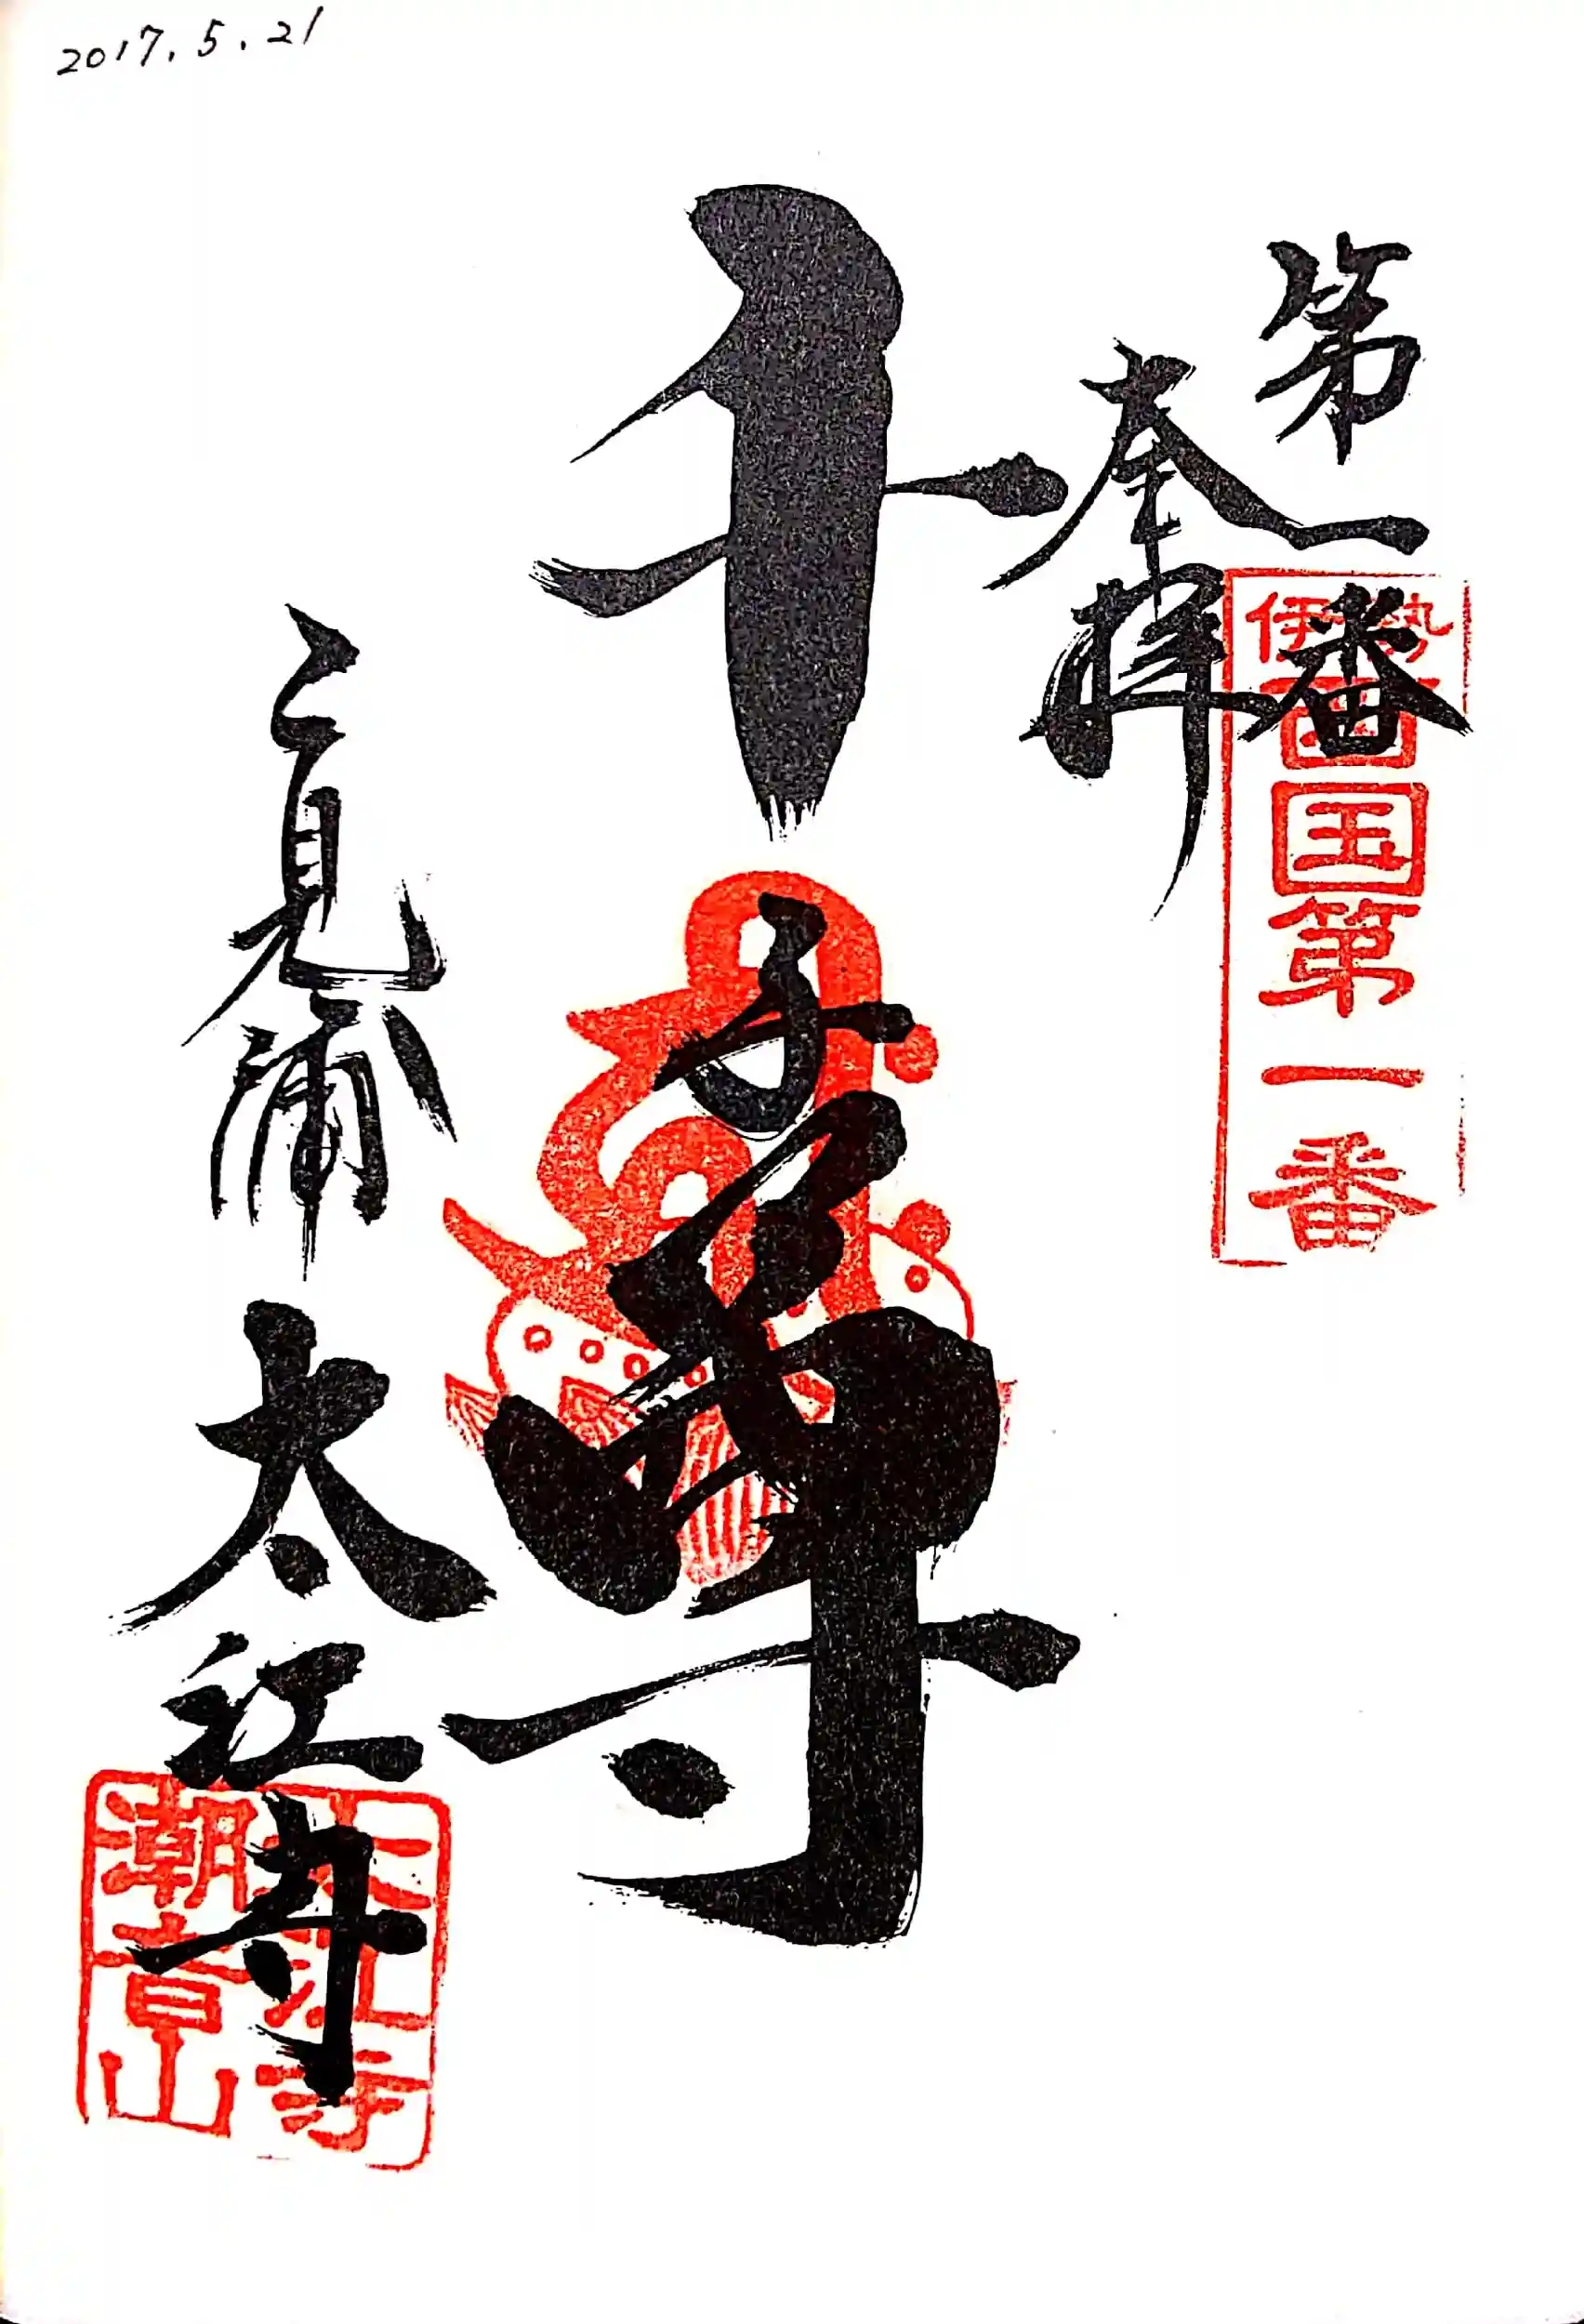 2017.5.21
第一番
奉拝
伊勢西国第一番
千手尊
二見浦
太江寺
太江寺
潮音山